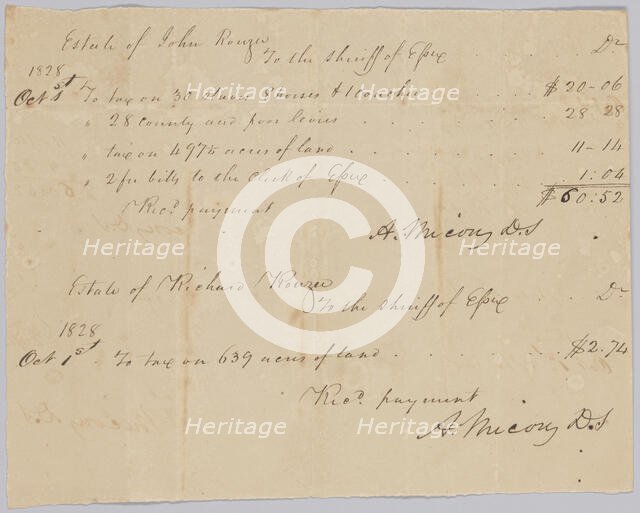 Estate of John Rouzee
To the sheriff of Essex Dr
1828
Oct 1st To tax on 30 slaves horses & 1 coachee $20-06
" 28 county and poor levies 28 28
" tax on 497½ acres of land 11-14
" 2 fee bills to the clerk of Essex 1:04
$60:52
Recd. payment
A. Micou, D.S
Estate of Richard Rouzee
To the sheriff of Essex Dr
1828
Oct 1st To tax on 639 acres of land $2.74
Recd. payment
A. Micou, D.S
Heritage Heritage Heritage
Heritage Heritage Heritage
Heritage Heritage Heritage